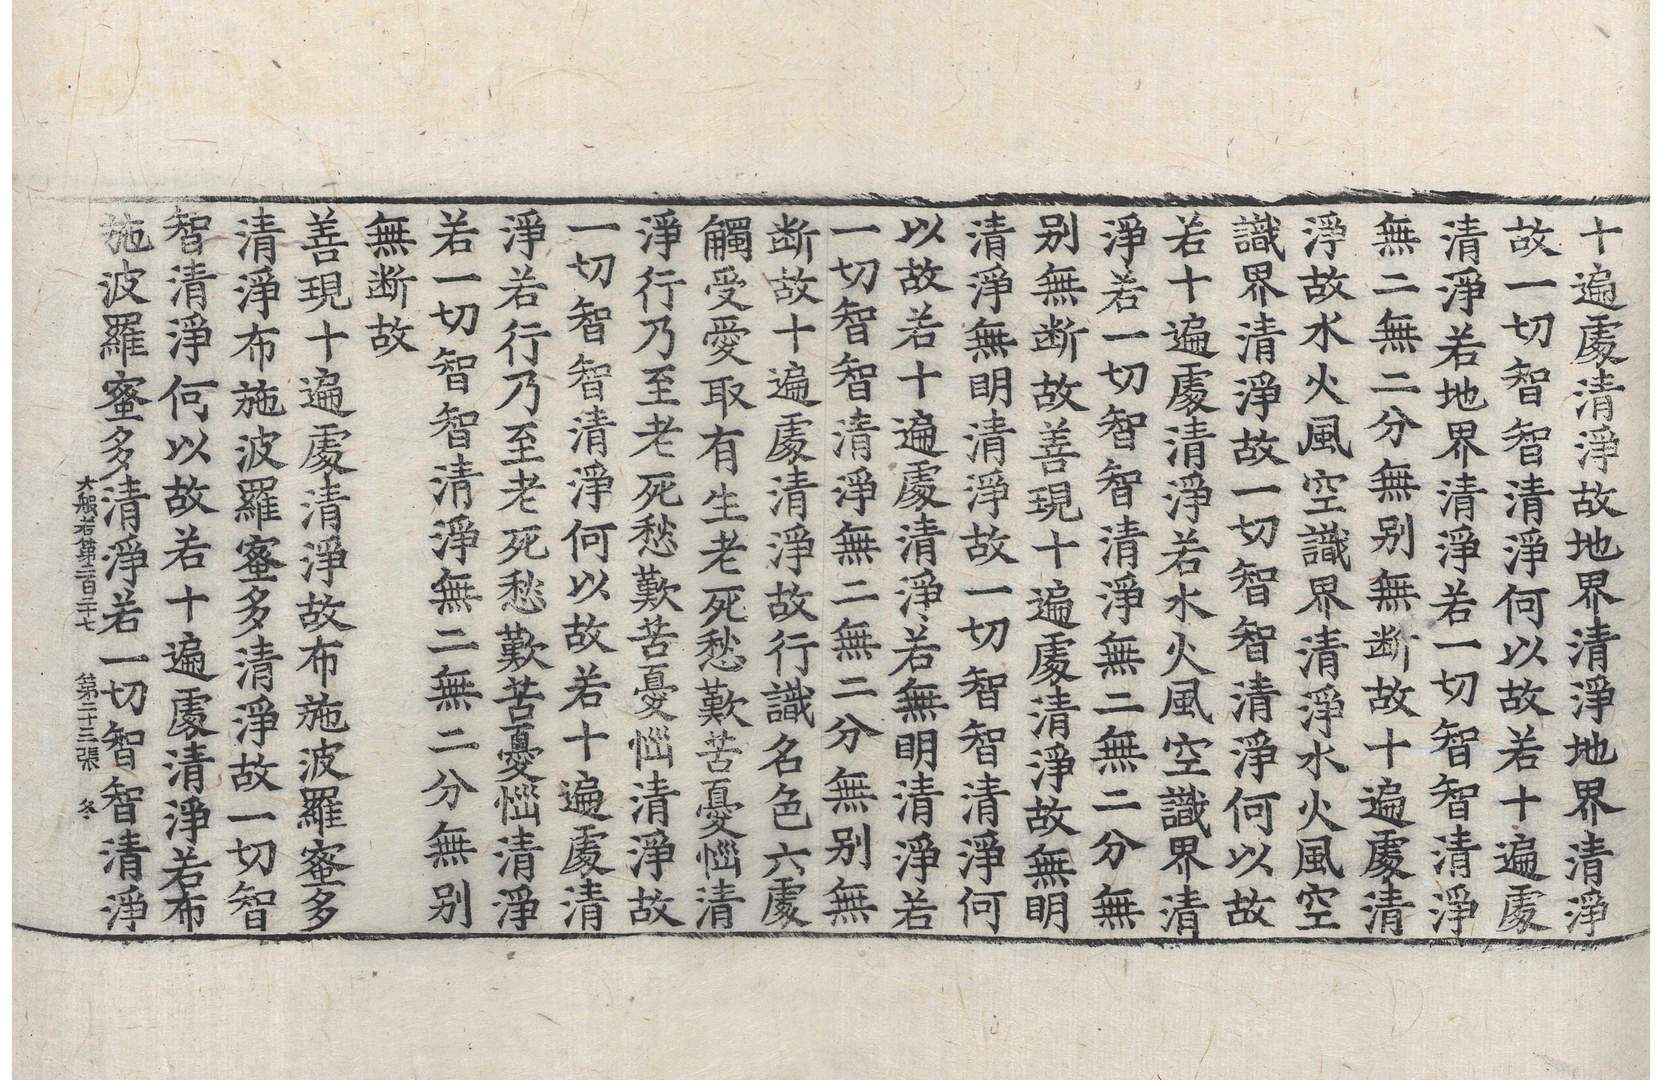 十遍處清淨故地界清淨地界清淨
故一切智智清淨何以故若十遍處
清淨若地界清淨若一切智智清淨
無二無二分無別無斷故十遍處清
淨故水火風空識界清淨水火風空
識界清淨故一切智智清淨何以故
若十遍處清淨若水火風空識界清
淨若一切智智清淨無二無二分無
別無斷故善現十遍處清淨故無明
清淨無明清淨故一切智智清淨何
以故若十遍處清淨若無明清淨若
一切智智清淨無二無二分無別無
斷故十遍處清淨故行識名色六處
觸受愛取有生老死愁歎苦憂惱清
淨行乃至老死愁歎苦憂惱清淨故
一切智智清淨何以故若十遍處清
淨若行乃至老死愁歎苦憂惱清淨
若一切智智清淨無二無二分無別
無斷故
善現十遍處清淨故布施波羅蜜多
清淨布施波羅蜜多清淨故一切智
智清淨何以故若十遍處清淨若布
施波羅蜜多清淨若一切智智清淨
大般若第二百三十七 第二十三張 冬